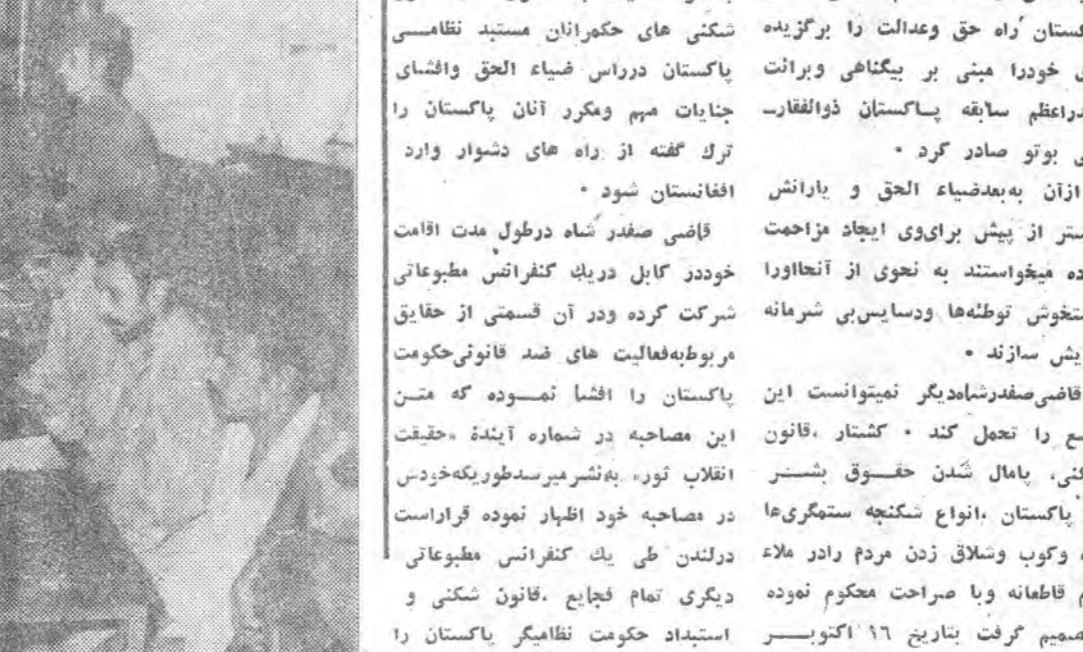 کستان راه حق وعدالت را برگزیده
خودرا مبنی بر بیگناهی وبرائت
دراعظم سابقه پــاکستان ذوالفقارـ
بوتو صادر کرد .
ازآن به‌بعدضیاء الحق و یارانش
ستر از پیش برای‌وی ایجاد مزاحمت
ده میخواستند به نحوی از آنحااورا
ستخوش توطئه‌ها ودسایس‌بی شرمانه
یش سازند .
قاضی‌صفدرشاه‌دیگر نمیتوانست این
ع را تحمل کند . کشتار ،قانون
کنی، پامال شدن حقــوق بشــر
پاکستان ،انواع شکنجه ستمگری‌ها
وکوب وشلاق زدن مردم رادر ملاء
قاطعانه وبا صراحت محکوم نموده
صمیم گرفت بتاریخ ۱٦ اکتوبــر
شکنی های حکمرانان مستبد نظامــی
پاکستان درراس ضیاء الحق وافشای
جنایات مهم ومکرر آنان پاکستان را
ترك گفته از راه های دشوار وارد
افغانستان شود .
قاضی صفدر شاه درطول مدت اقامت
خوددر کابل دریك کنفرانس مطبوعاتی
شرکت کرده ودر آن قسمتی از حقایق
مربوط‌به‌فعالیت های ضد قانونی‌حکومت
پاکستان را افشا نمــوده که متــن
این مصاحبه در شماره آیندهٔ «حقیقت
انقلاب ثور» به‌نشر میرسدطوریکه‌خودش
در مصاحبه خود اظهار نموده قراراست
درلندن طی یك کنفرانس مطبوعاتی
دیگری تمام فجایع ،قانون شکنی و
استبداد حکومت نظامیگر پاکستان را